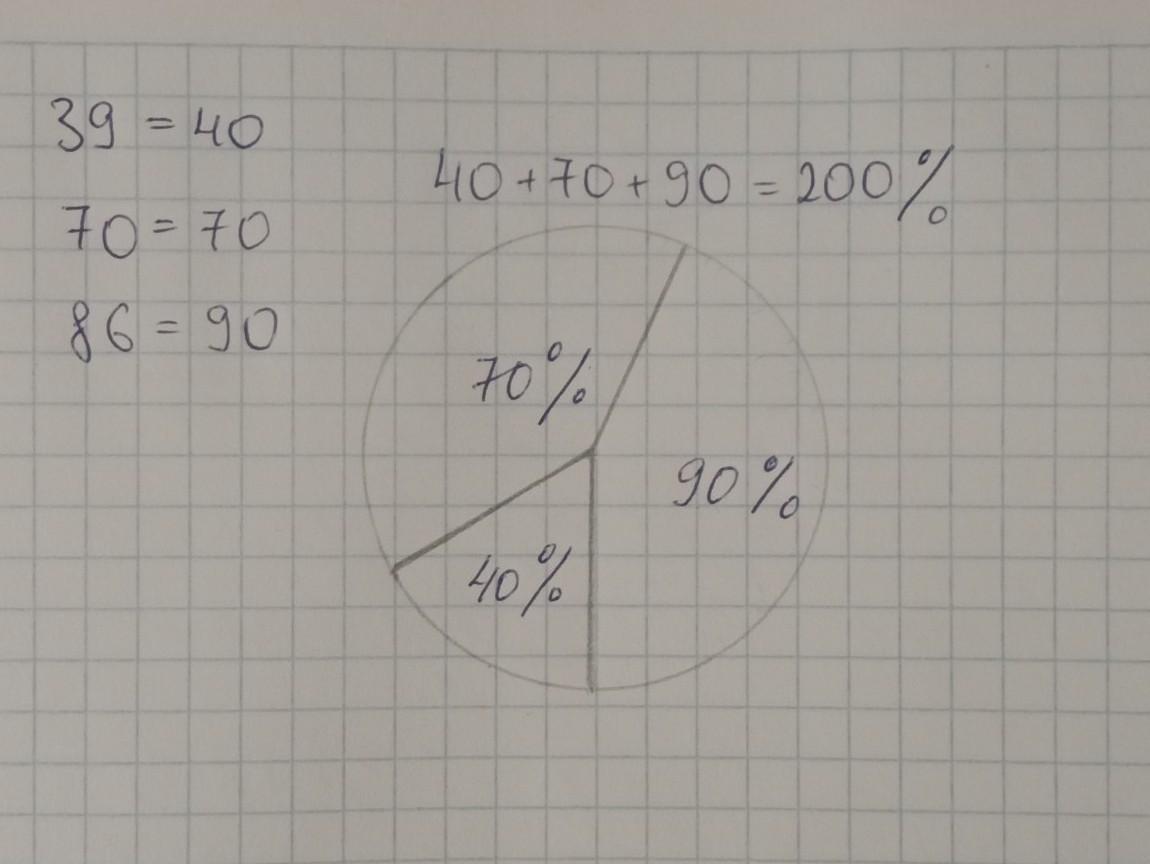 39 = 40
40 + 70 + 90 = 200%
70 = 70
86 = 90
70%
90%
40%